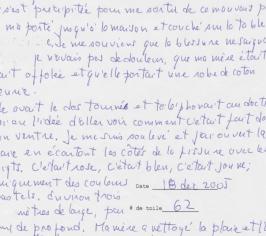 s'est précipitée pour me sortir de ce mauvais p
m'a porté jusqu'à la maison et couché sur la table
. Je me souviens que la blessure ne saignai
je n'avais pas de douleur, que ma mère était
ait affolée et qu'elle portait une robe de coton
le avait le dos tourné et téléphonait au docte
l'idée d'aller voir comment c'était fait da
on ventre, je me suis soulevé et j'ai ouvert la
en écartant les côtés de la fissure avec les
igts. C'était rose, c'était bleu, c'était jaune;
iquement des couleurs
Date 18 dec 2005
pastels, d'environ trois
# de toile 62
mètres de large, peu
de profond. Ma mère a nettoyé la plaie et l'